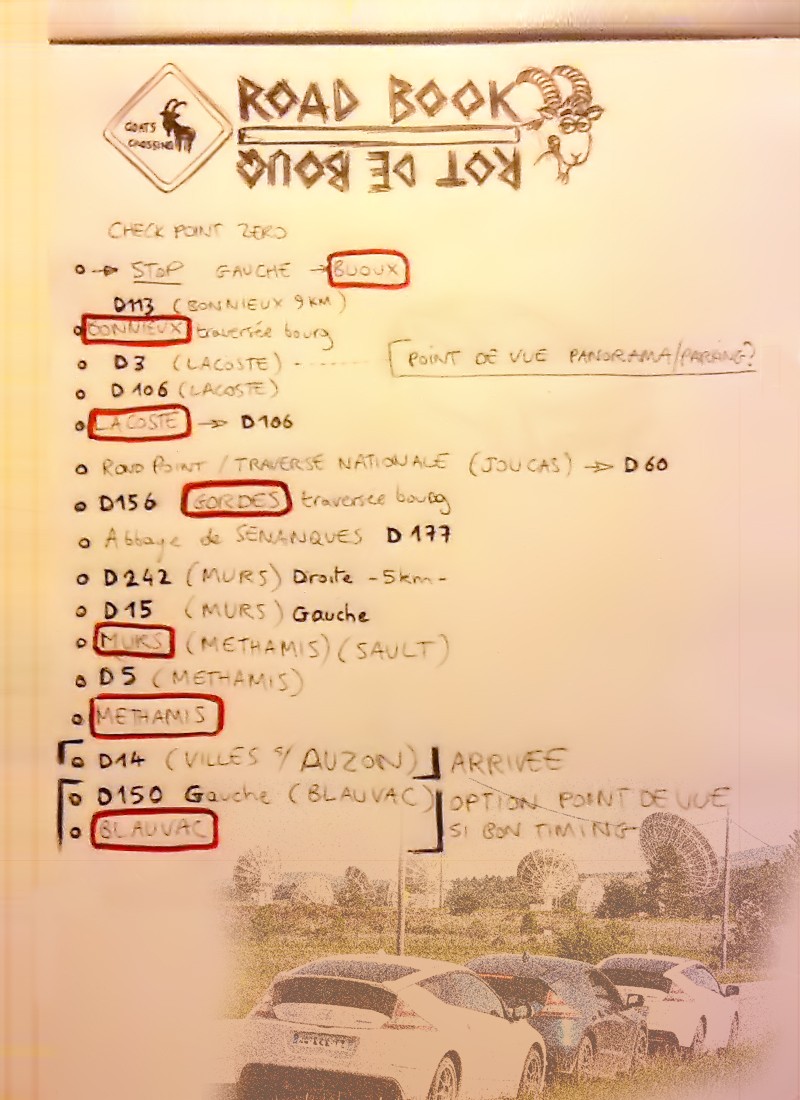 GOATS
CROSSING
ROAD BOOK
ROT DE BOUQ
CHECK POINT ZERO
→ STOP GAUCHE → BUOUX
D113 (BONNIEUX 9KM)
BONNIEUX traversée bourg
D3 (LACOSTE) ------- POINT DE VUE PANORAMA/PARKING?
D106 (LACOSTE)
LACOSTE → D106
ROND POINT / TRAVERSE NATIONALE (JOUCAS) → D60
D156 GORDES traversée bourg
Abbaye de SENANQUES D177
D242 (MURS) Droite -5km-
D15 (MURS) Gauche
MURS (METHAMIS) (SAULT)
D5 (METHAMIS)
METHAMIS
D14 (VILLES S/ AUZON) ARRIVEE
D150 Gauche (BLAUVAC) OPTION POINT DE VUE
BLAUVAC SI BON TIMING